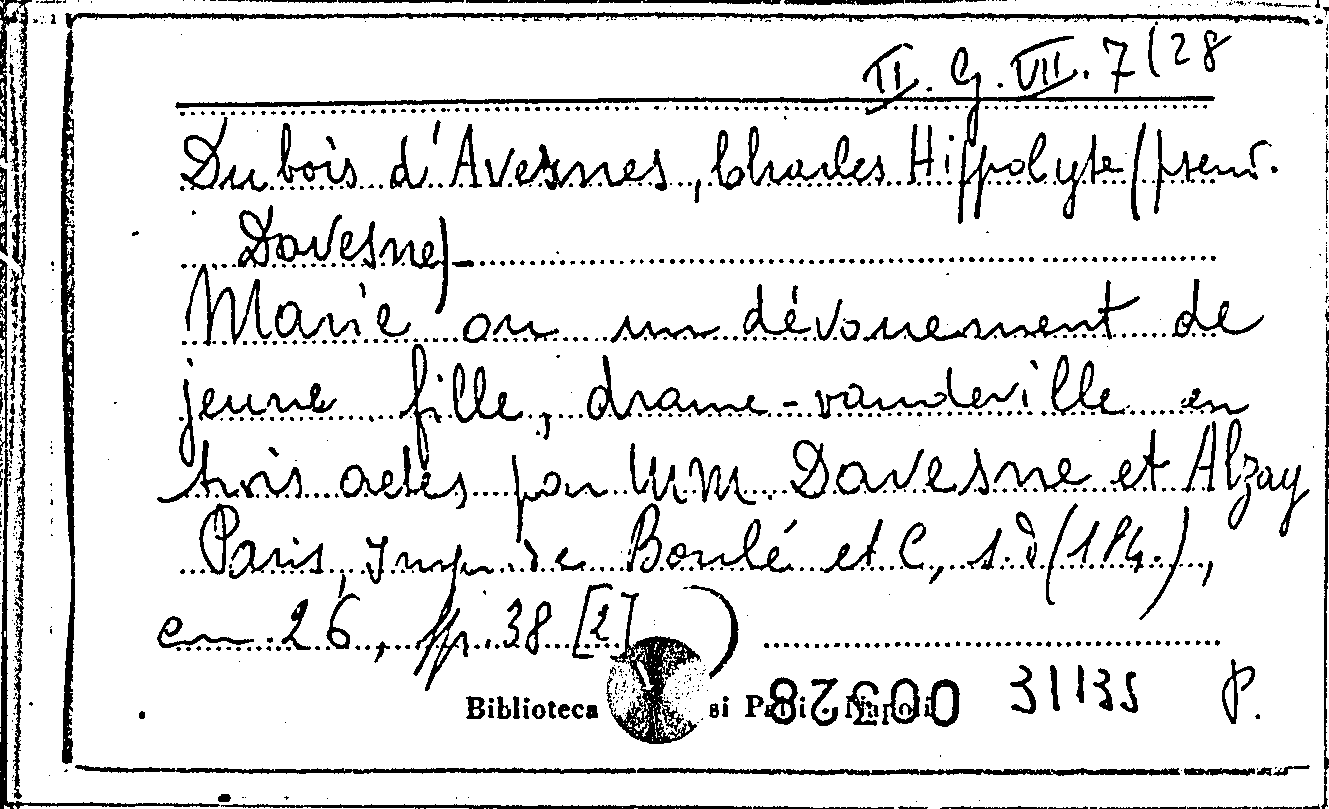 II. G. VII. 7(28
Dubois d'Avesnes, Charles Hippolyte (pseud.
Davesne)_
Marie ou un dévouement de
jeune fille, drame-vaudeville en
trois actes par MM Davesne et Alzay
Paris, Imp. de Boulé et C, s.d (184.),
cm. 26, pp. 38 [2] )
Biblioteca si P
003528 31135 P.